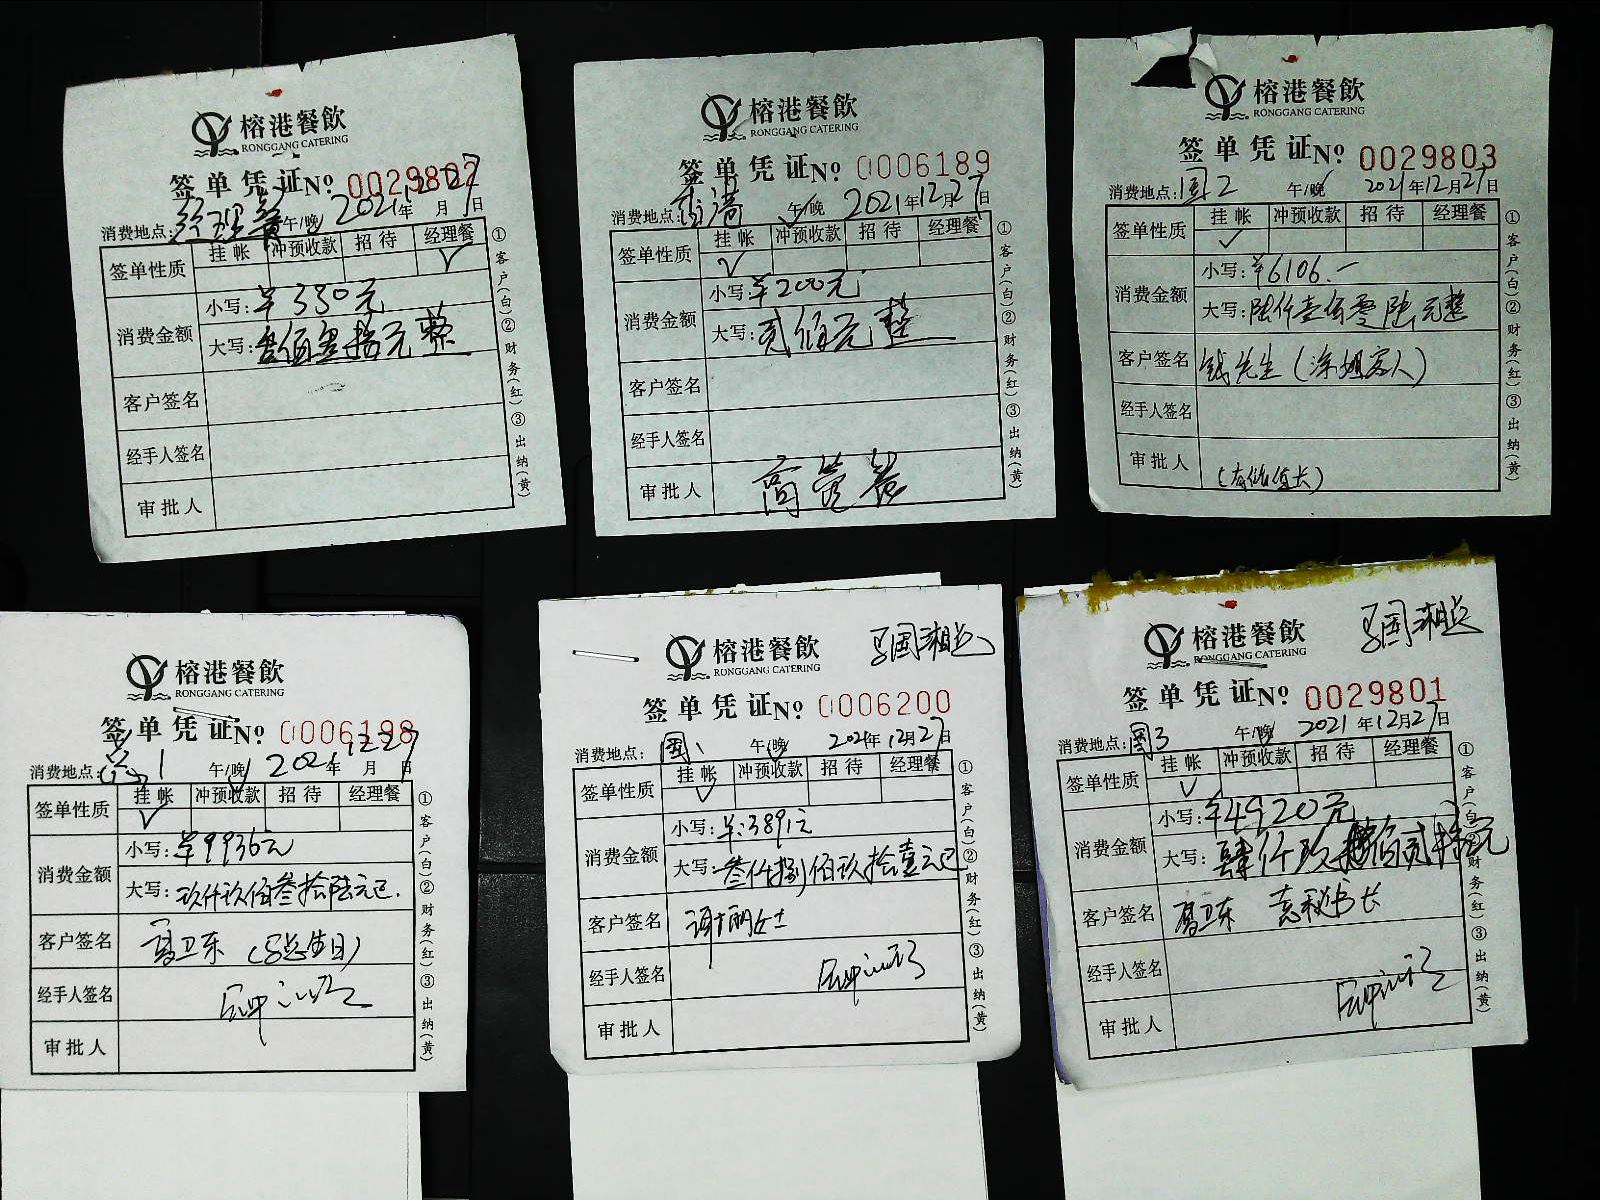 榕港餐飲
RONGGANG CATERING
签单凭证№ 0029802
消费地点: 经理餐 午/晚 2021年12月27日
签单性质 挂帐 冲预收款 招待 经理餐 √
消费金额 小写: ¥330元
大写: 叁佰叁拾元整
客户签名
经手人签名
审批人
①客户(白)②财务(红)③出纳(黄)
榕港餐飲
RONGGANG CATERING
签单凭证№ 0006189
消费地点: 午/晚 2021年12月27日
签单性质 挂帐 √ 冲预收款 招待 经理餐
消费金额 小写: ¥200元
大写: 贰佰元整
客户签名
经手人签名
审批人 高管餐
①客户(白)②财务(红)③出纳(黄)
榕港餐飲
RONGGANG CATERING
签单凭证№ 0029803
消费地点: 国2 午/晚 2021年12月27日
签单性质 挂帐 √ 冲预收款 招待 经理餐
消费金额 小写: ¥6106.一
大写: 陆仟壹佰零陆元整
客户签名 钱先生(涂姐客人)
经手人签名
审批人
①客户(白)②财务(红)③出纳(黄)
榕港餐飲
RONGGANG CATERING
签单凭证№ 0006198
消费地点: 1 午/晚 2021年12月27日
签单性质 挂帐 √ 冲预收款 招待 经理餐
消费金额 小写: ¥9936元
大写: 玖仟玖佰叁拾陆元正.
客户签名 卫东(总生日)
经手人签名
审批人
①客户(白)②财务(红)③出纳(黄)
国湘总
榕港餐飲
RONGGANG CATERING
签单凭证№ 0006200
消费地点: 国1 午/晚 2021年12月27日
签单性质 挂帐 √ 冲预收款 招待 经理餐
消费金额 小写: ¥:3891元
大写: 叁仟捌佰玖拾壹元正
客户签名 谢丽女士
经手人签名
审批人
①客户(白)②财务(红)③出纳(黄)
国湘总
榕港餐飲
RONGGANG CATERING
签单凭证№ 0029801
消费地点: 国3 午/晚 2021年12月27日
签单性质 挂帐 √ 冲预收款 招待 经理餐
消费金额 小写: ¥4920元
大写: 肆仟玖佰贰拾元
客户签名 卫东 袁秘书长
经手人签名
审批人
①客户(白)②财务(红)③出纳(黄)